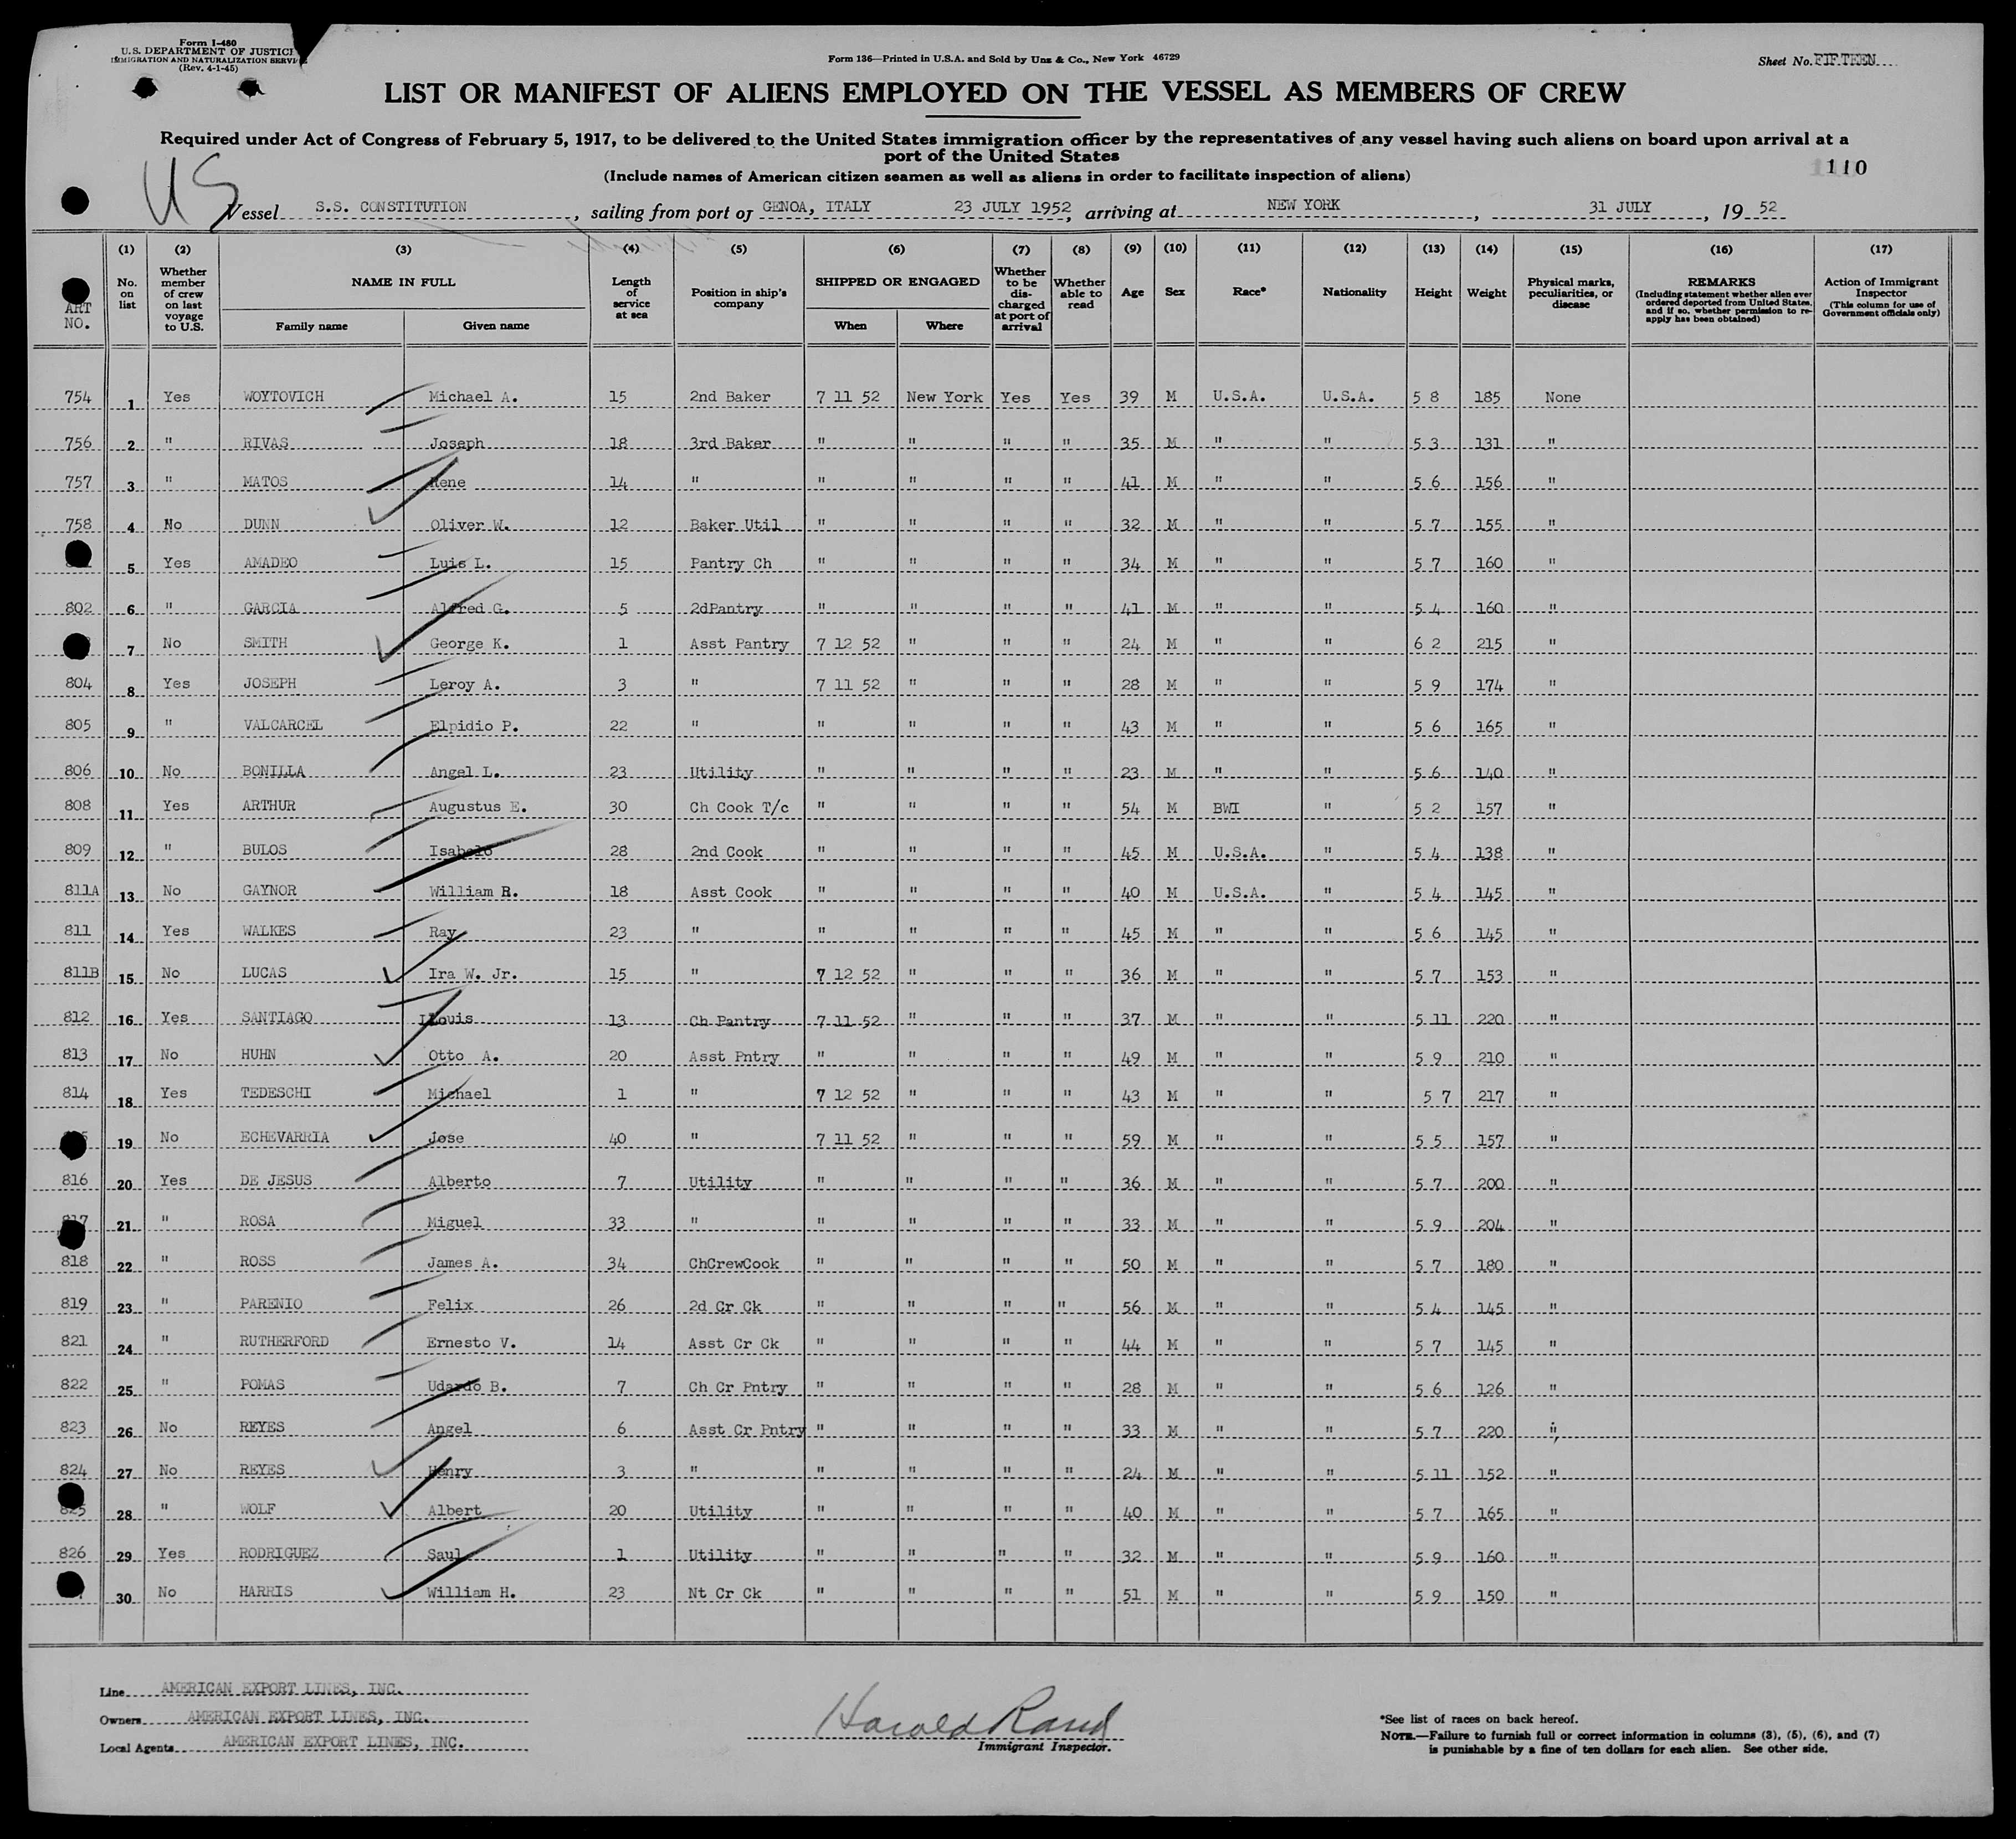 Form I-480
U.S. DEPARTMENT OF JUSTICE
IMMIGRATION AND NATURALIZATION SERVICE
(Rev. 4-1-45)
Form 136—Printed in U.S.A. and Sold by Unz & Co., New York 46729
Sheet No. FIFTEEN
LIST OR MANIFEST OF ALIENS EMPLOYED ON THE VESSEL AS MEMBERS OF CREW
Required under Act of Congress of February 5, 1917, to be delivered to the United States immigration officer by the representatives of any vessel having such aliens on board upon arrival at a
port of the United States
(Include names of American citizen seamen as well as aliens in order to facilitate inspection of aliens)
110
US
Vessel S.S. CONSTITUTION, sailing from port of GENOA, ITALY 23 JULY 1952, arriving at NEW YORK, 31 JULY, 19 52
ART NO. (1) No. on list (2) Whether member of crew on last voyage to U.S. (3) NAME IN FULL Family name Given name (4) Length of service at sea (5) Position in ship's company (6) SHIPPED OR ENGAGED When Where (7) Whether to be discharged at port of arrival (8) Whether able to read (9) Age (10) Sex (11) Race* (12) Nationality (13) Height (14) Weight (15) Physical marks, peculiarities, or disease (16) REMARKS (Including statement whether alien ever ordered deported from United States, and if so, whether permission to re-apply has been obtained) (17) Action of Immigrant Inspector (This column for use of Government officials only)
754 1 Yes WOYTOVICH Michael A. 15 2nd Baker 7 11 52 New York Yes Yes 39 M U.S.A. U.S.A. 5 8 185 None
756 2 " RIVAS Joseph 18 3rd Baker " " " " 35 M " " 5 3 131 "
757 3 " MATOS Rene 14 " " " " " 41 M " " 5 6 156 "
758 4 No DUNN Oliver W. 12 Baker Util " " " " 32 M " " 5 7 155 "
5 Yes AMADEO Luis L. 15 Pantry Ch " " " " 34 M " " 5 7 160 "
802 6 " GARCIA Alfred G. 5 2dPantry " " " " 41 M " " 5 4 160 "
7 No SMITH George K. 1 Asst Pantry 7 12 52 " " " 24 M " " 6 2 215 "
804 8 Yes JOSEPH Leroy A. 3 " 7 11 52 " " " 28 M " " 5 9 174 "
805 9 " VALCARCEL Elpidio P. 22 " " " " " 43 M " " 5 6 165 "
806 10 No BONILLA Angel L. 23 Utility " " " " 23 M " " 5 6 140 "
808 11 Yes ARTHUR Augustus E. 30 Ch Cook T/c " " " " 54 M BWI " 5 2 157 "
809 12 " BULOS Isabelo 28 2nd Cook " " " " 45 M U.S.A. " 5 4 138 "
811A 13 No GAYNOR William R. 18 Asst Cook " " " " 40 M U.S.A. " 5 4 145 "
811 14 Yes WALKES Ray 23 " " " " " 45 M " " 5 6 145 "
811B 15 No LUCAS Ira W. Jr. 15 " 7 12 52 " " " 36 M " " 5 7 153 "
812 16 Yes SANTIAGO Louis 13 Ch Pantry 7 11 52 " " " 37 M " " 5 11 220 "
813 17 No HUHN Otto A. 20 Asst Pntry " " " " 49 M " " 5 9 210 "
814 18 Yes TEDESCHI Michael 1 " 7 12 52 " " " 43 M " " 5 7 217 "
19 No ECHEVARRIA Jose 40 " 7 11 52 " " " 59 M " " 5 5 157 "
816 20 Yes DE JESUS Alberto 7 Utility " " " " 36 M " " 5 7 200 "
817 21 " ROSA Miguel 33 " " " " " 33 M " " 5 9 204 "
818 22 " ROSS James A. 34 ChCrewCook " " " " 50 M " " 5 7 180 "
819 23 " PARENIO Felix 26 2d Cr Ck " " " " 56 M " " 5 4 145 "
821 24 " RUTHERFORD Ernesto V. 14 Asst Cr Ck " " " " 44 M " " 5 7 145 "
822 25 " POMAS Udardo B. 7 Ch Cr Pntry " " " " 28 M " " 5 6 126 "
823 26 No REYES Angel 6 Asst Cr Pntry " " " " 33 M " " 5 7 220 "
824 27 No REYES Henry 3 " " " " " 24 M " " 5 11 152 "
825 28 " WOLF Albert 20 Utility " " " " 40 M " " 5 7 165 "
826 29 Yes RODRIGUEZ Saul 1 Utility " " " " 32 M " " 5 9 160 "
30 No HARRIS William H. 23 Nt Cr Ck " " " " 51 M " " 5 9 150 "
Line AMERICAN EXPORT LINES, INC.
Owners AMERICAN EXPORT LINES, INC.
Local Agents AMERICAN EXPORT LINES, INC.
Harold Rand
Immigrant Inspector.
*See list of races on back hereof.
NOTE.—Failure to furnish full or correct information in columns (3), (5), (6), and (7)
is punishable by a fine of ten dollars for each alien. See other side.